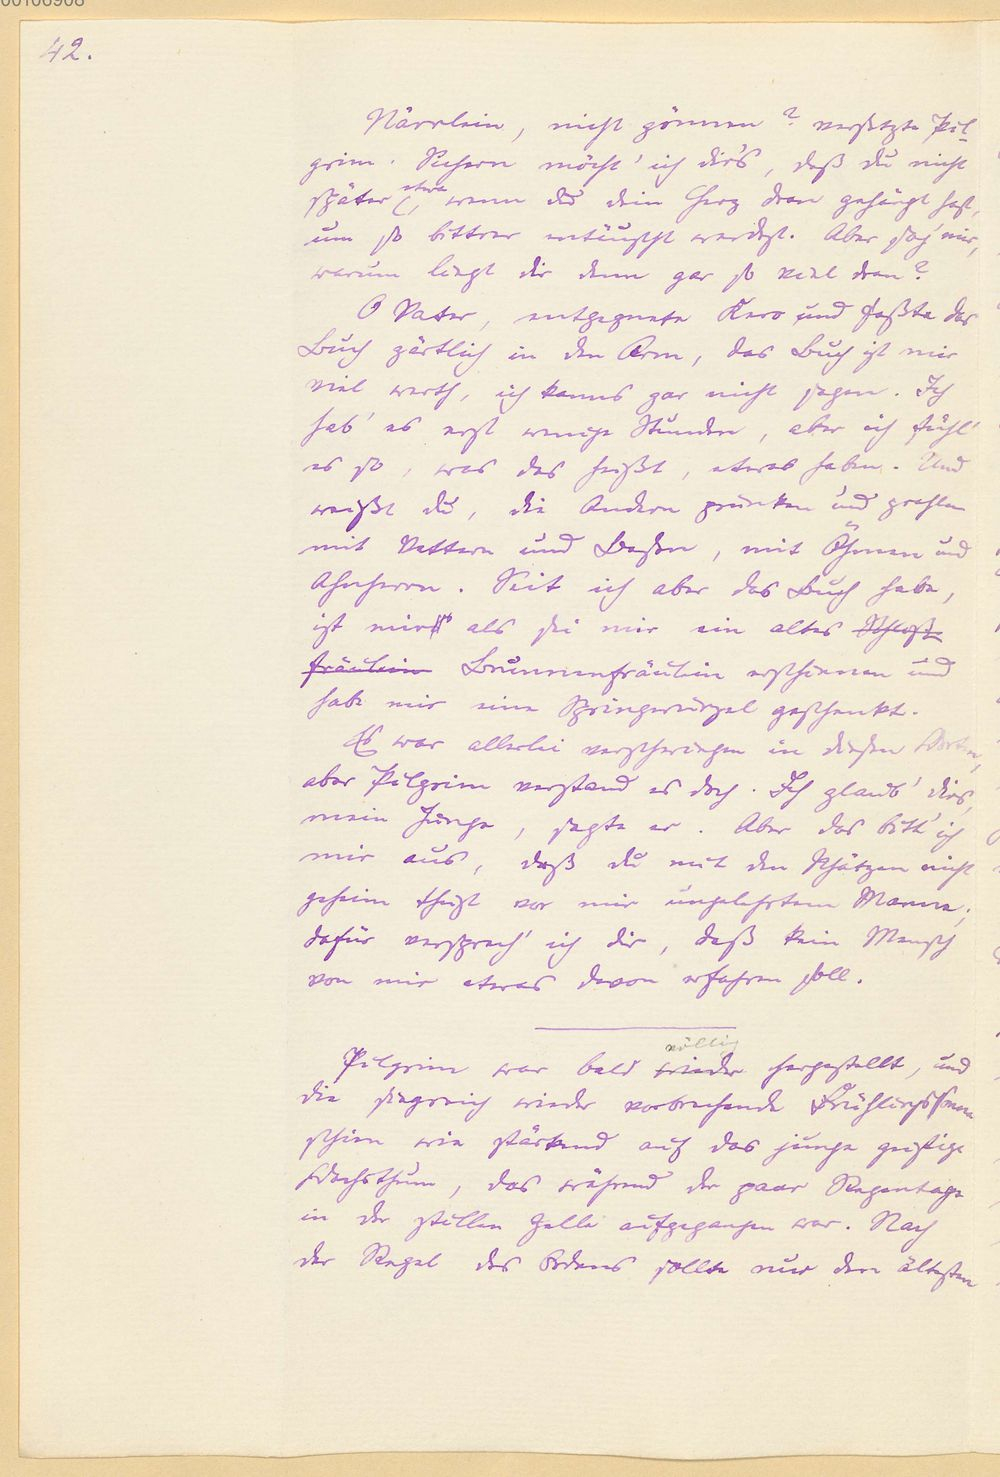 00106908
42.
Närrlein, nicht gönnen? versetzte Pil-
grim. Sichern möcht' ich dir's, daß du nicht
später etwa, wenn du dein Herz dran gehängt hast,
um so bittrer entäuscht werdest. Aber sag' mir,
warum liegt dir denn gar so viel dran?
O Vater, entgegnete Kero und faßte das
Buch zärtlich in den Arm, das Buch ist mir
viel werth, ich kanns gar nicht sagen. Ich
hab' es erst wenige Stunden, aber ich fühl'
es so, was das heißt, etwas haben. Und
weißt du, die Andern prunken und prahlen
mit Vettern und Basen, mit Öhmen und
Ahnherrn. Seit ich aber das Buch habe,
ist mir als sei mir ein altes Schloß-
fräulein Brunnenfräulein erschienen und
habe mir eine Springwurzel geschenkt.
Es war allerlei verschwiegen in diesen Worten,
aber Pilgrim verstand es doch. Ich glaub' dirs,
mein Junge, sagte er. Aber das bitt' ich
mir aus, daß du mit den Schätzen nicht
geheim thust vor mir ungelehrtem Manne;
dafür versprech' ich dir, daß kein Mensch
von mir etwas davon erfahren soll.
völlig
Pilgrim war bald wieder hergestellt, und
die siegreich wieder vorbrechende Frühlingssonne
schien wie stärkend auf das junge geistige
Wachsthum, das während der paar Regentage
in der stillen Zelle aufgegangen war. Nach
der Regel des Ordens sollte nur den ältesten